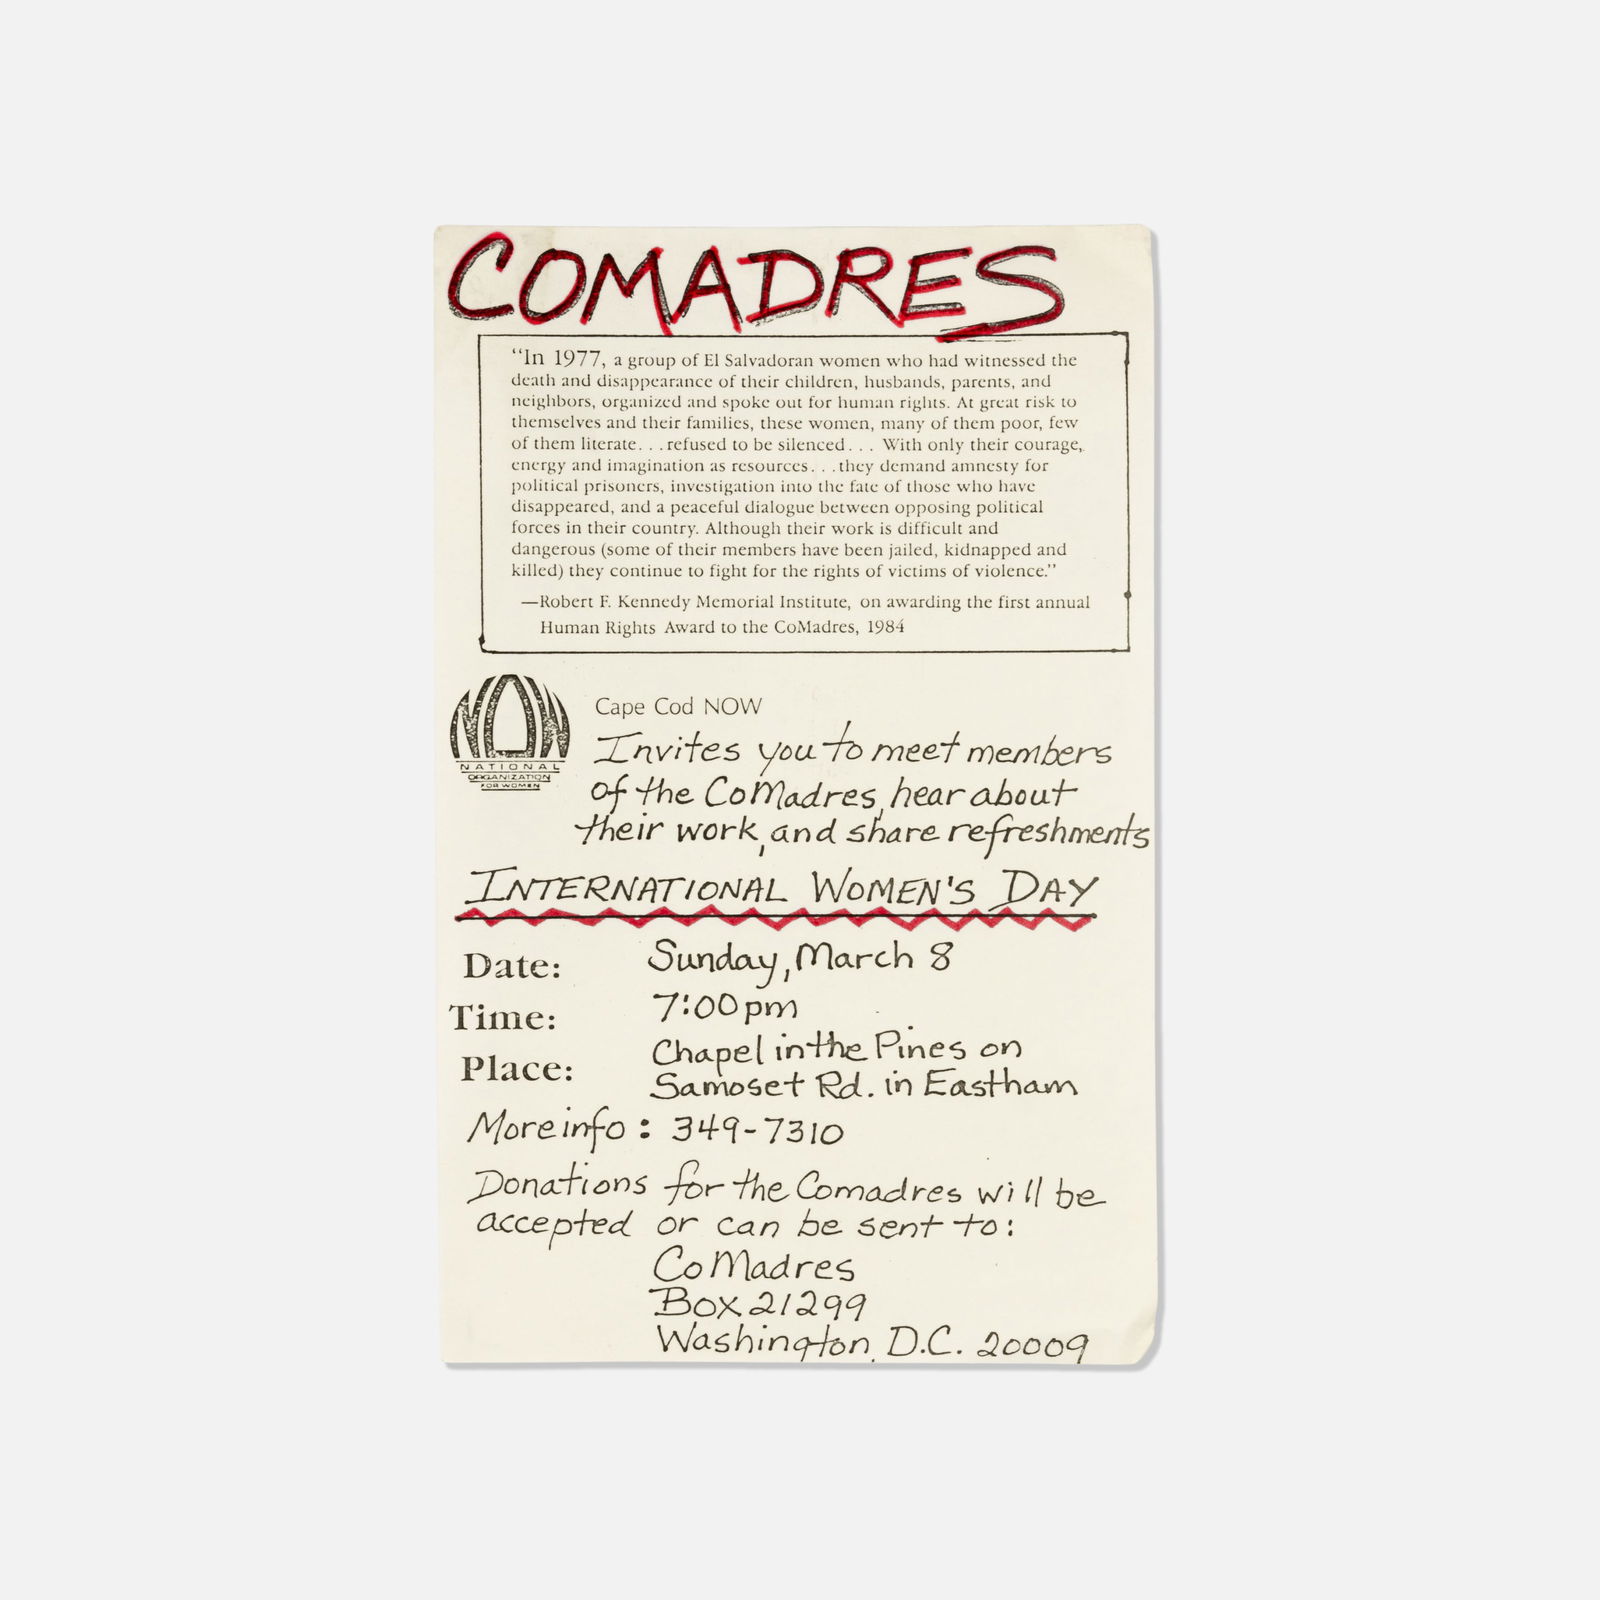 COMADRES
“In 1977, a group of El Salvadoran women who had witnessed the
death and disappearance of their children, husbands, parents, and
neighbors, organized and spoke out for human rights. At great risk to
themselves and their families, these women, many of them poor, few
of them literate. . .refused to be silenced. . . With only their courage,
energy and imagination as resources. . .they demand amnesty for
political prisoners, investigation into the fate of those who have
disappeared, and a peaceful dialogue between opposing political
forces in their country. Although their work is difficult and
dangerous (some of their members have been jailed, kidnapped and
killed) they continue to fight for the rights of victims of violence.”
—Robert F. Kennedy Memorial Institute, on awarding the first annual
Human Rights Award to the CoMadres, 1984
NOW
NATIONAL
ORGANIZATION
FOR WOMEN
Cape Cod NOW
Invites you to meet members
of the CoMadres, hear about
their work, and share refreshments
INTERNATIONAL WOMEN'S DAY
Date: Sunday, March 8
Time: 7:00pm
Place: Chapel in the Pines on
Samoset Rd. in Eastham
More info: 349-7310
Donations for the Comadres will be
accepted or can be sent to:
CoMadres
Box 21299
Washington, D.C. 20009